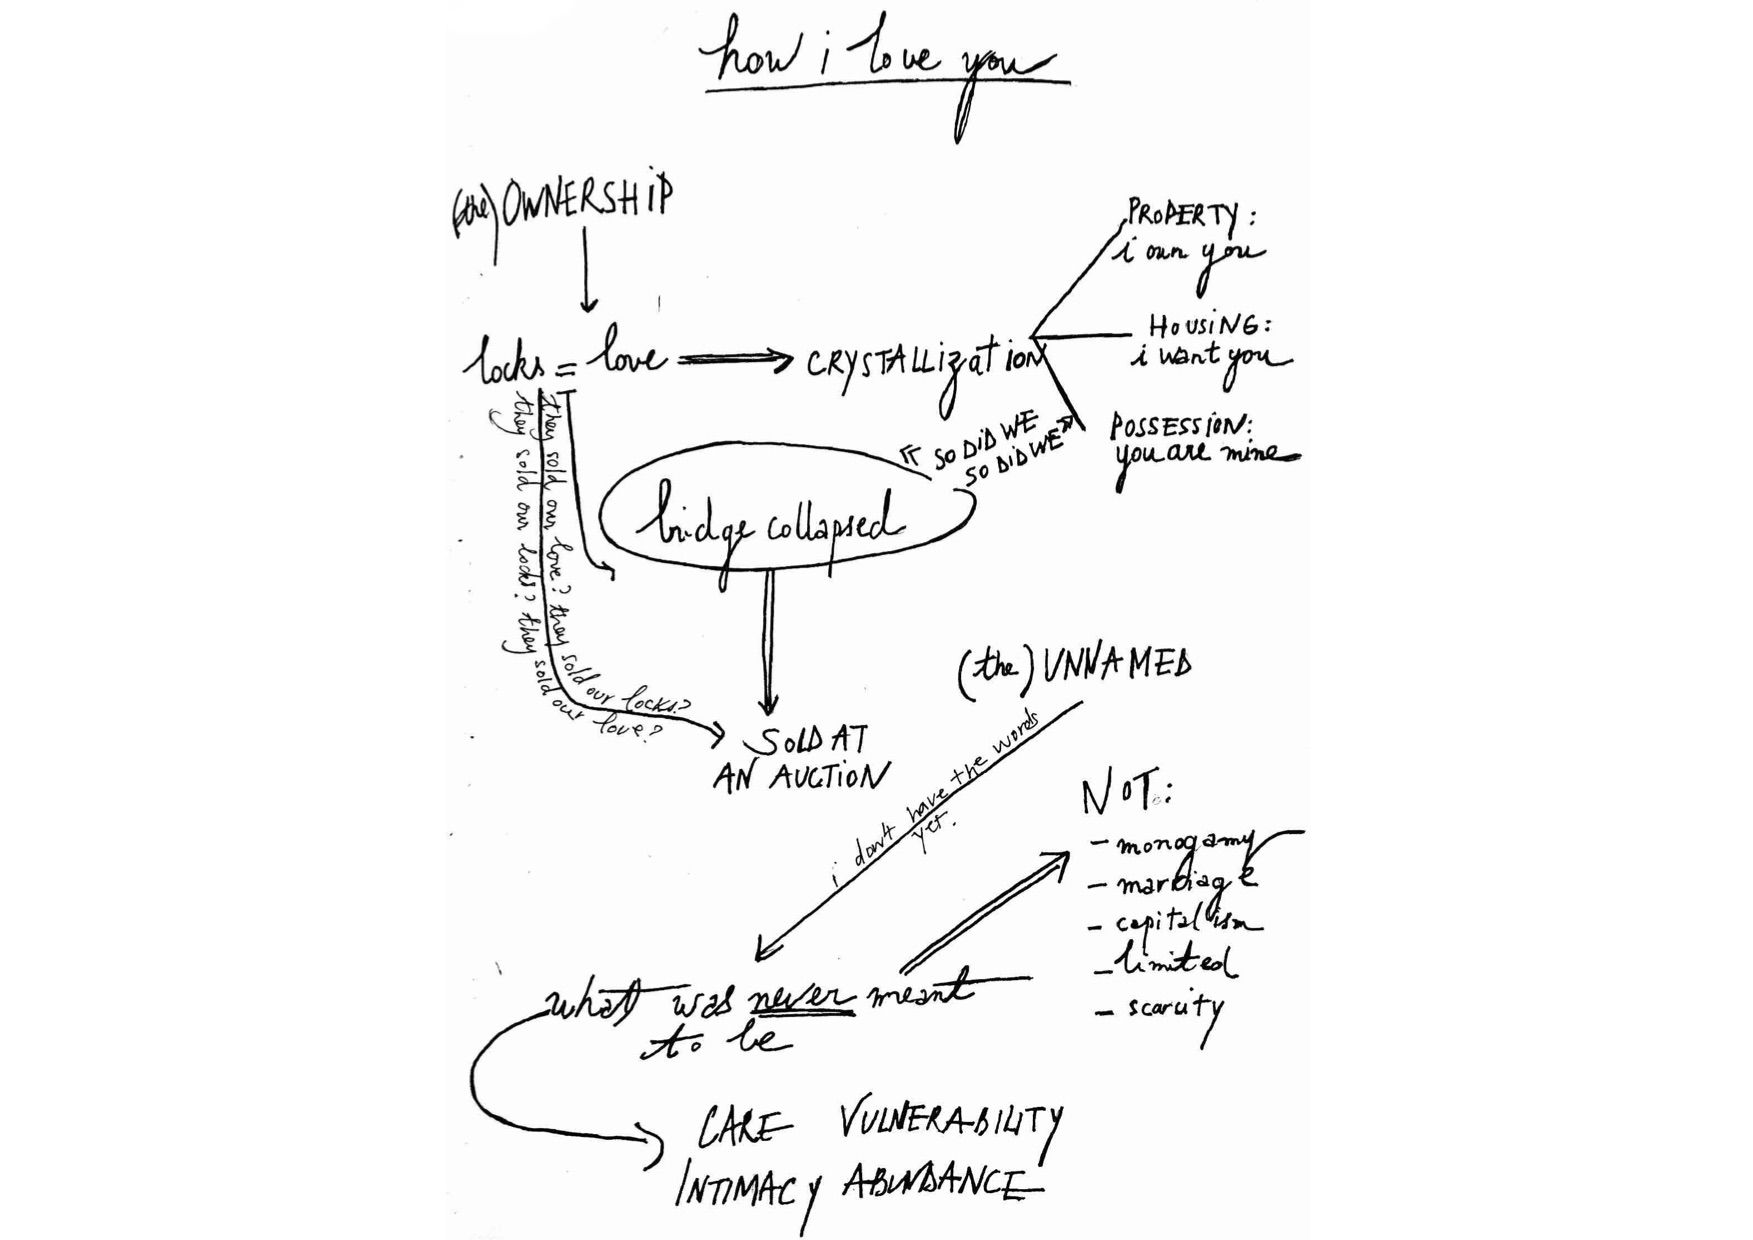 how i love you
(the) OWNERSHIP
PROPERTY:
i own you
HOUSING:
i want you
locks = love
CRYSTALLization
POSSESSION:
you are mine
SO DID WE
SO DID WE
bridge collapsed
they sold our love? they sold our locks?
they sold our locks? they sold our love?
SOLD AT
AN AUCTION
(the) UNNAMED
i don't have the words
yet.
NOT:
- monogamy
- marriage
- capitalism
- limited
- scarcity
what was never meant
to be
CARE VULNERABILITY
INTIMACY ABUNDANCE